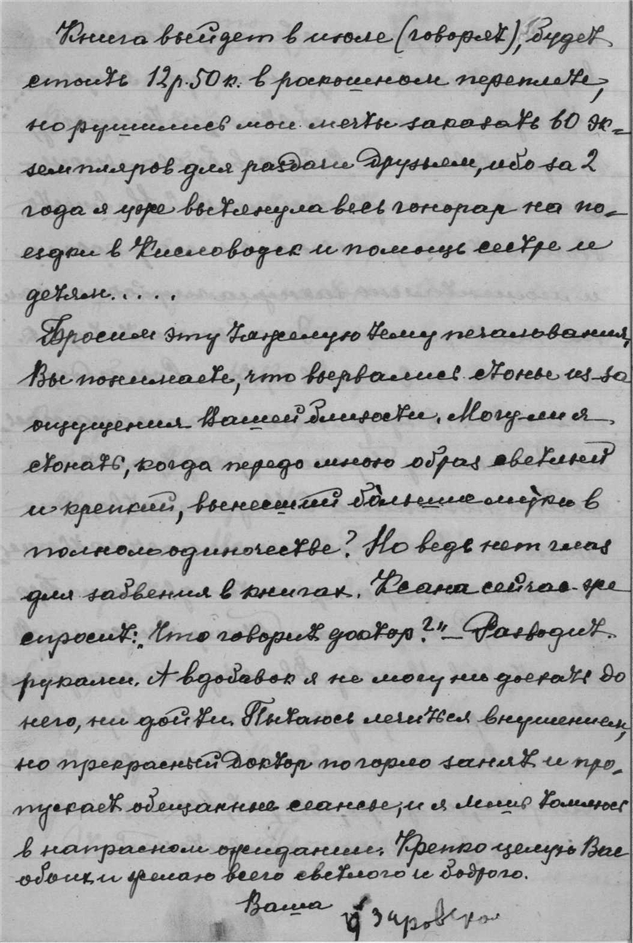 Книга выйдет в июле (говорят), будет
стоить 12 р. 50 к. в роскошном переплете,
но рушились мои мечты заказать 60 эк-
земпляров для раздачи друзьям, ибо за 2
года я уже вытянула весь гонорар на по-
ездки в Кисловодск и помощь сестре и
детям.....
Бросим эту тяжелую тему печалования,
Вы понимаете, что вырвались стоны из-за
ощущения Вашей близости. Могу ли я
стонать, когда передо мною образ светлый
и крепкий, вынесший большие муки в
полном одиночестве? Но ведь нет глаз
для забвения в книгах. Ксана сейчас же
спросит: „Что говорит доктор?" – Разводит
руками. А вдобавок я не могу ни доехать до
него, ни дойти. Пытаюсь лечиться внушением,
но прекрасный доктор по горло занят и про-
пускает обещанные сеансы, и я лишь томлюсь
в напрасном ожидании. Крепко целую Вас
обоих и желаю всего светлого и бодрого.
Ваша